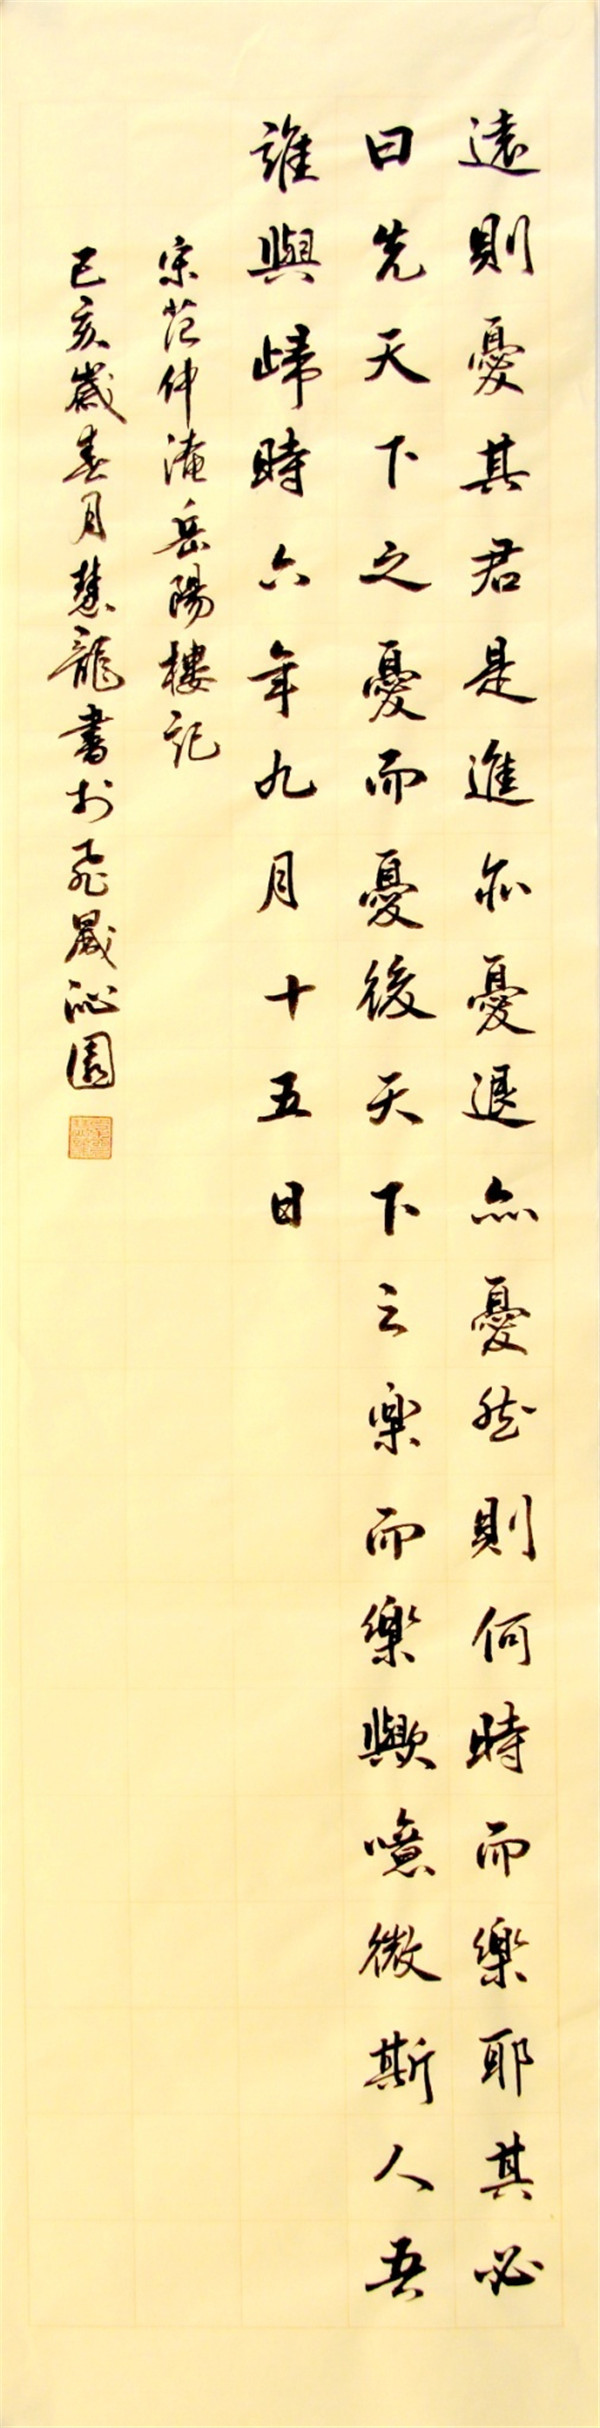 遠則憂其君是進亦憂退亦憂然則何時而樂耶其必
曰先天下之憂而憂後天下之楽而樂歟噫微斯人吾
誰與歸時六年九月十五日
宋范仲淹岳陽樓記
己亥歲春月慧龍書於飛晟沁園